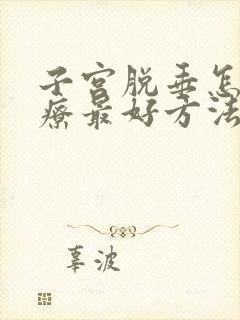 子宫脱垂怎
疗最好方法
辜波